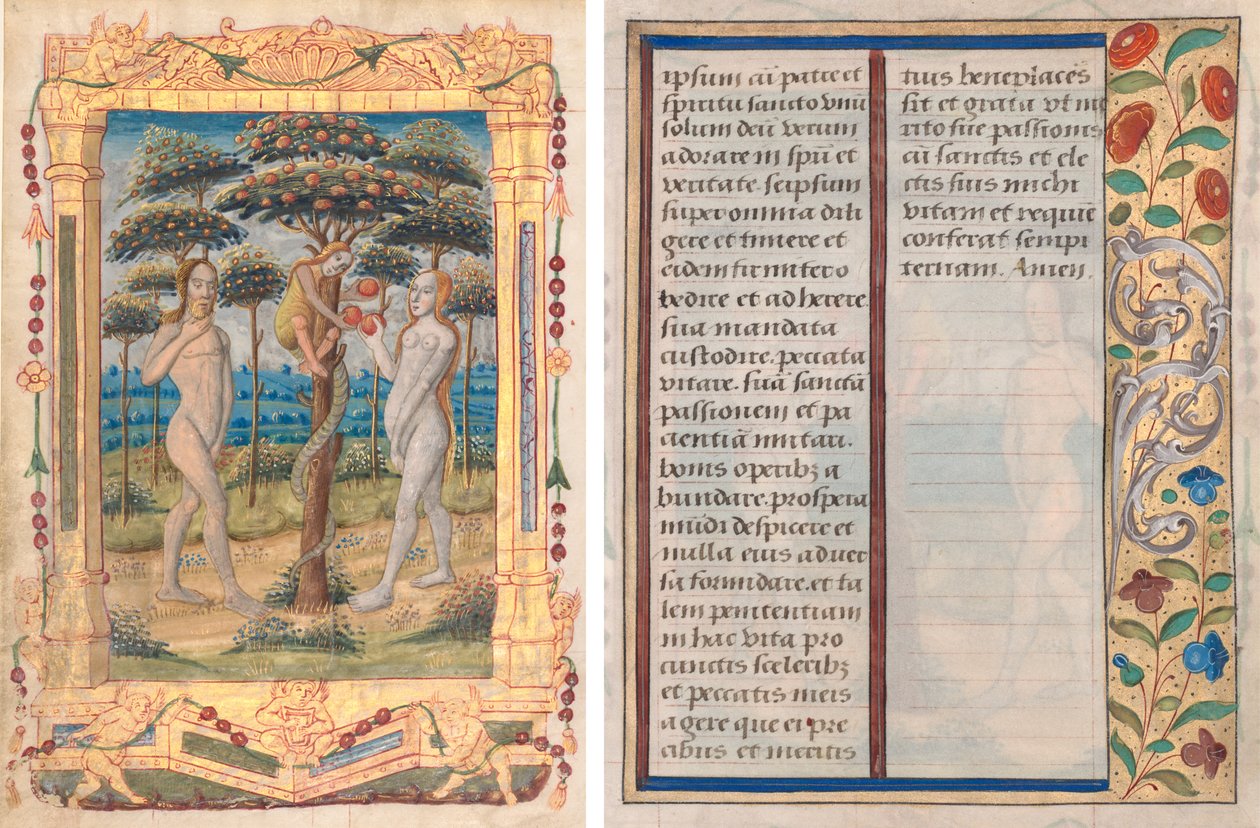 ipsum cū patre et
spiritu sancto vnū
solum deū verum
adorare in spū et
veritate. seipsum
super omnia dili
gere et timere et
eidem firmiter o
bedire et adherere
sua mandata
custodire. peccata
vitare. suā sanctā
passionem et pa
cientiā imitari.
bonis operibꝫ a
bundare. prospera
mūdi despicere et
nulla eius aduer
sa formidare. et ta
lem penitentiam
in hac vita pro
cunctis sceleribꝫ
et peccatis meis
agere que ei pre
cibus et meritis
tius beneplacēs
sit et grata vt me
rito sue passionis
cū sanctis et ele
ctis suis michi
vitam et requiē
conferat sempi
ternam. Amen.